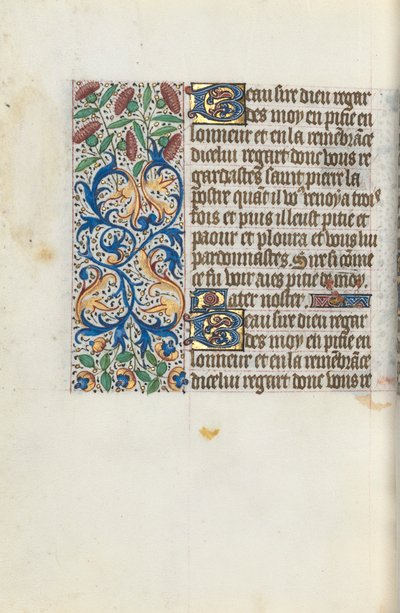 Beau sire dieu regar
des moy en pitie en
lonneur et en la remẽbrãce
dicelui regart donc vous re
gardastes saint pierre la
postre quãt il vo9 renoya trois
fois et puis il eust pitie et
paour et ploura et vous lui
pardonnastes. Sire si cõme
ce fu voir aies pitie de moy.
Pater noster.
Beau sire dieu regar
des moy en pitie en
lonneur et en la remẽbrãce
dicelui regart donc vous re